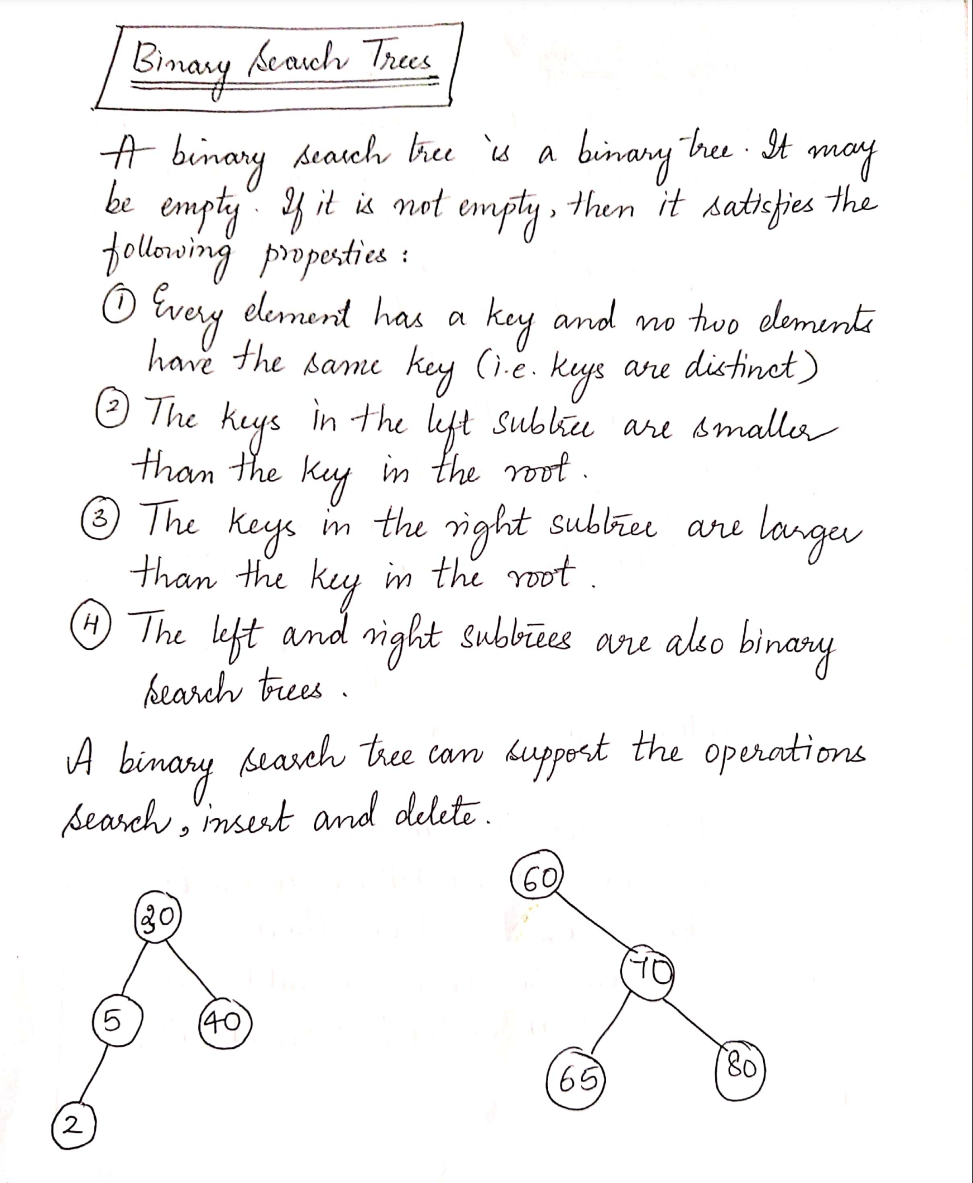 Binary Search Trees
A binary search tree is a binary tree. It may
be empty. If it is not empty, then it satisfies the
following properties :
① Every element has a key and no two elements
have the same key (i.e. keys are distinct)
② The keys in the left subtree are smaller
than the key in the root.
③ The keys in the right subtree are larger
than the key in the root.
④ The left and right subtrees are also binary
search trees.
A binary search tree can support the operations
search, insert and delete.
60
30
70
5
40
65
80
2